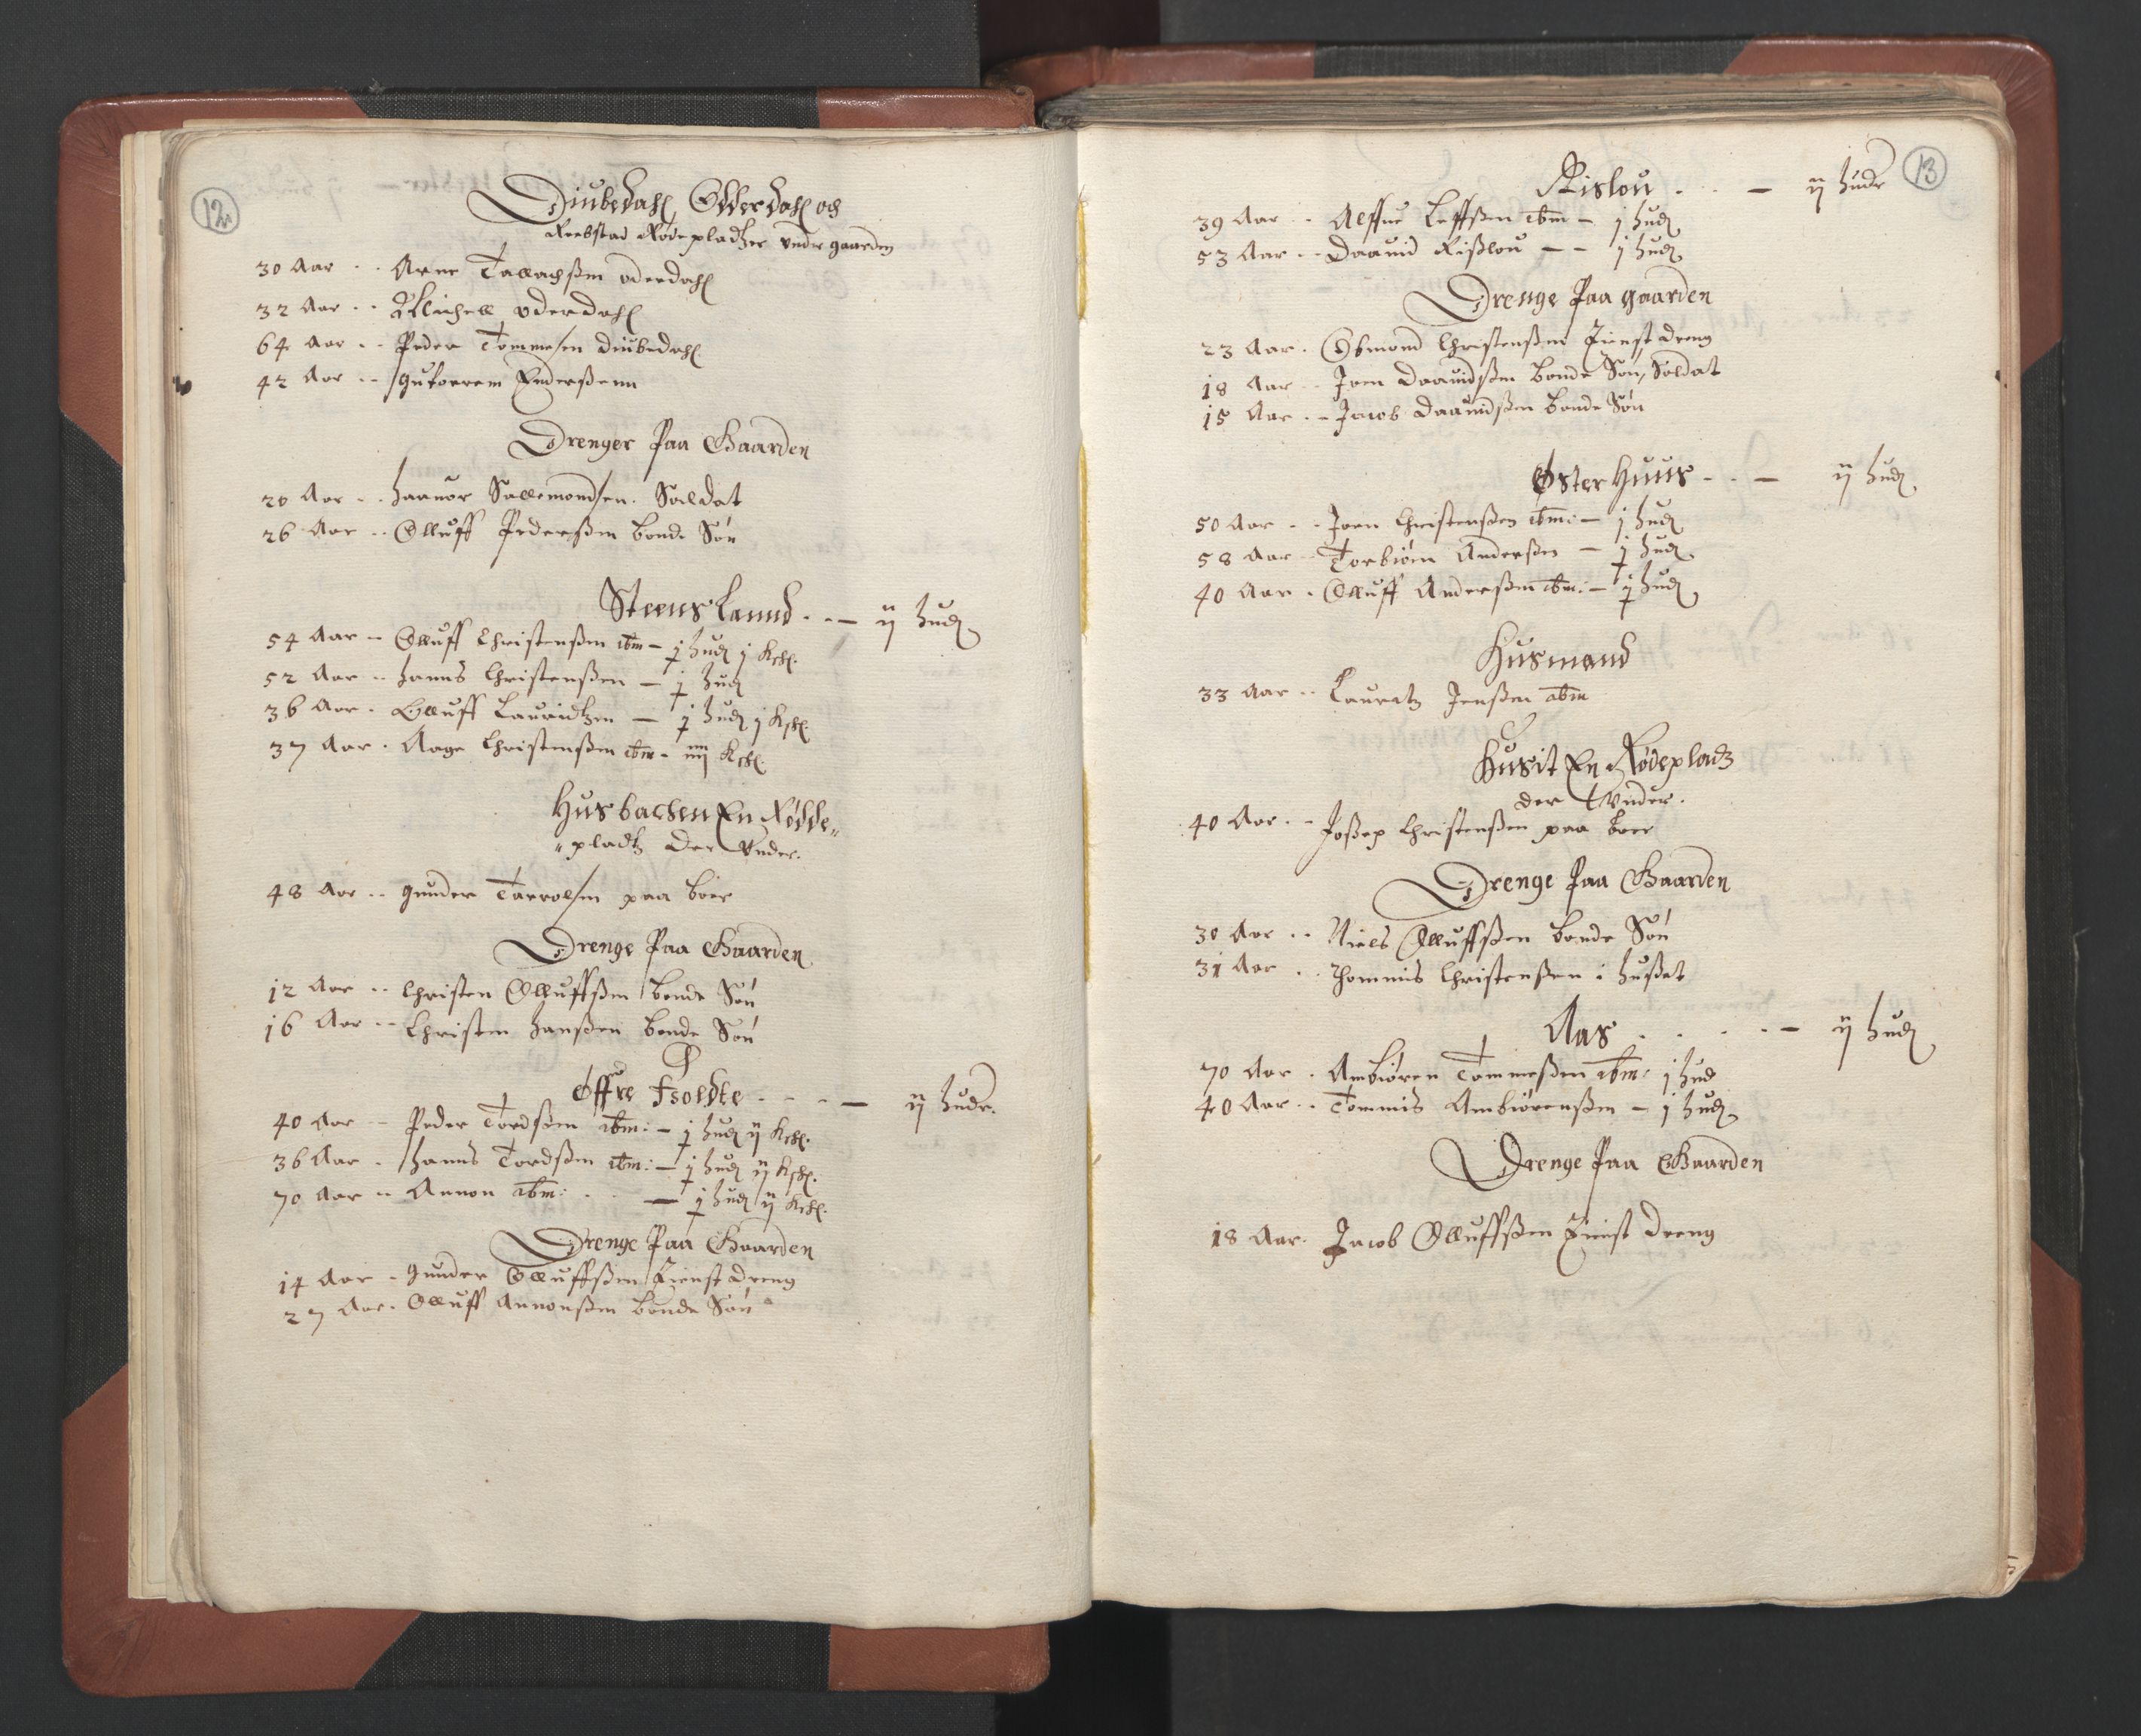 12
Diubedahl, Odderdahl och
Reebstad Rødepladtzer under gaarden
30 Aar .. Arne Tallachßen oderdahl
32 Aar .. Michell oderdahl
64 Aar .. Peder Tommesen diubedahl
42 Aar .. Gutorrem Enderßenn
Drenger Paa Gaarden
20 Aar .. Haauor Sallemondsen. Soldat
26 Aar .. Olluff Pederßen bonde Søn
Steens Lannd . . — ij hudr
54 Aar .. Olluff Christenßen ibm — j hud j Kchl.
52 Aar .. Hanns Christenßen — j hud
36 Aar . Olluff Lauridtzen — j hud j Kchl.
37 Aar . Aage Christenßen ibm - iiij Kchl.
Husbachen En Rødde„
„pladtz der Under.
48 Aar .. Gunder Tarrolsen paa boer
Drenge Paa Gaarden
12 Aar .. Christen Olluffßen bonde Søn
16 Aar .. Christen Hanßen bonde Søn
Øffre Fsoldte . . . — ij hudr.
40 Aar .. Peder Tordßen ibm: — j hud ij Kchl.
36 Aar . Hanns Tordßen ibm: — j hud ij Kchl.
70 Aar .. Annon ibm: . . — j hud ij Kchl.
Drenge Paa Gaarden
14 Aar . Gunder Olluffßen Tienst dreng
27 Aar . Olluff Annonßen bonde Søn
13
Rislou . . — ij hudr
39 Aar .. Aleffue Leffßen ibm — j hud
53 Aar .. Daauid Rißlou — — j hud
Drenge Paa gaarden
23 Aar . Osmond Christenßen Tienst dreng
18 Aar .. Joen Daauidßen bonde Søn, Soldat
15 Aar .. Jacob Daauidßen bonde Søn
Øster Huus . . — ij hud
50 Aar .. Joen Christenßen ibm: — j hud
58 Aar .. Torbiørn Anderßen — j hud
40 Aar . Olluff Anderßen ibm: — j hud
Husmend
33 Aar .. Lauratz Jenßen ibm
Husit En Rødepladz
der Under.
40 Aar .. Joßep Christenßen paa boer
Drenge Paa Gaarden
30 Aar .. Niels Olluffßen bonde Søn
31 Aar .. Thommis Christenßen i hußet
Aas . . . . — ij hud
70 Aar . Ambiøren Tommeßen ibm: j hud
40 Aar .. Tommis Ambiørenßen — j hud
Drenge Paa Gaarden
18 Aar . Jacob Olluffßen Tienst dreng